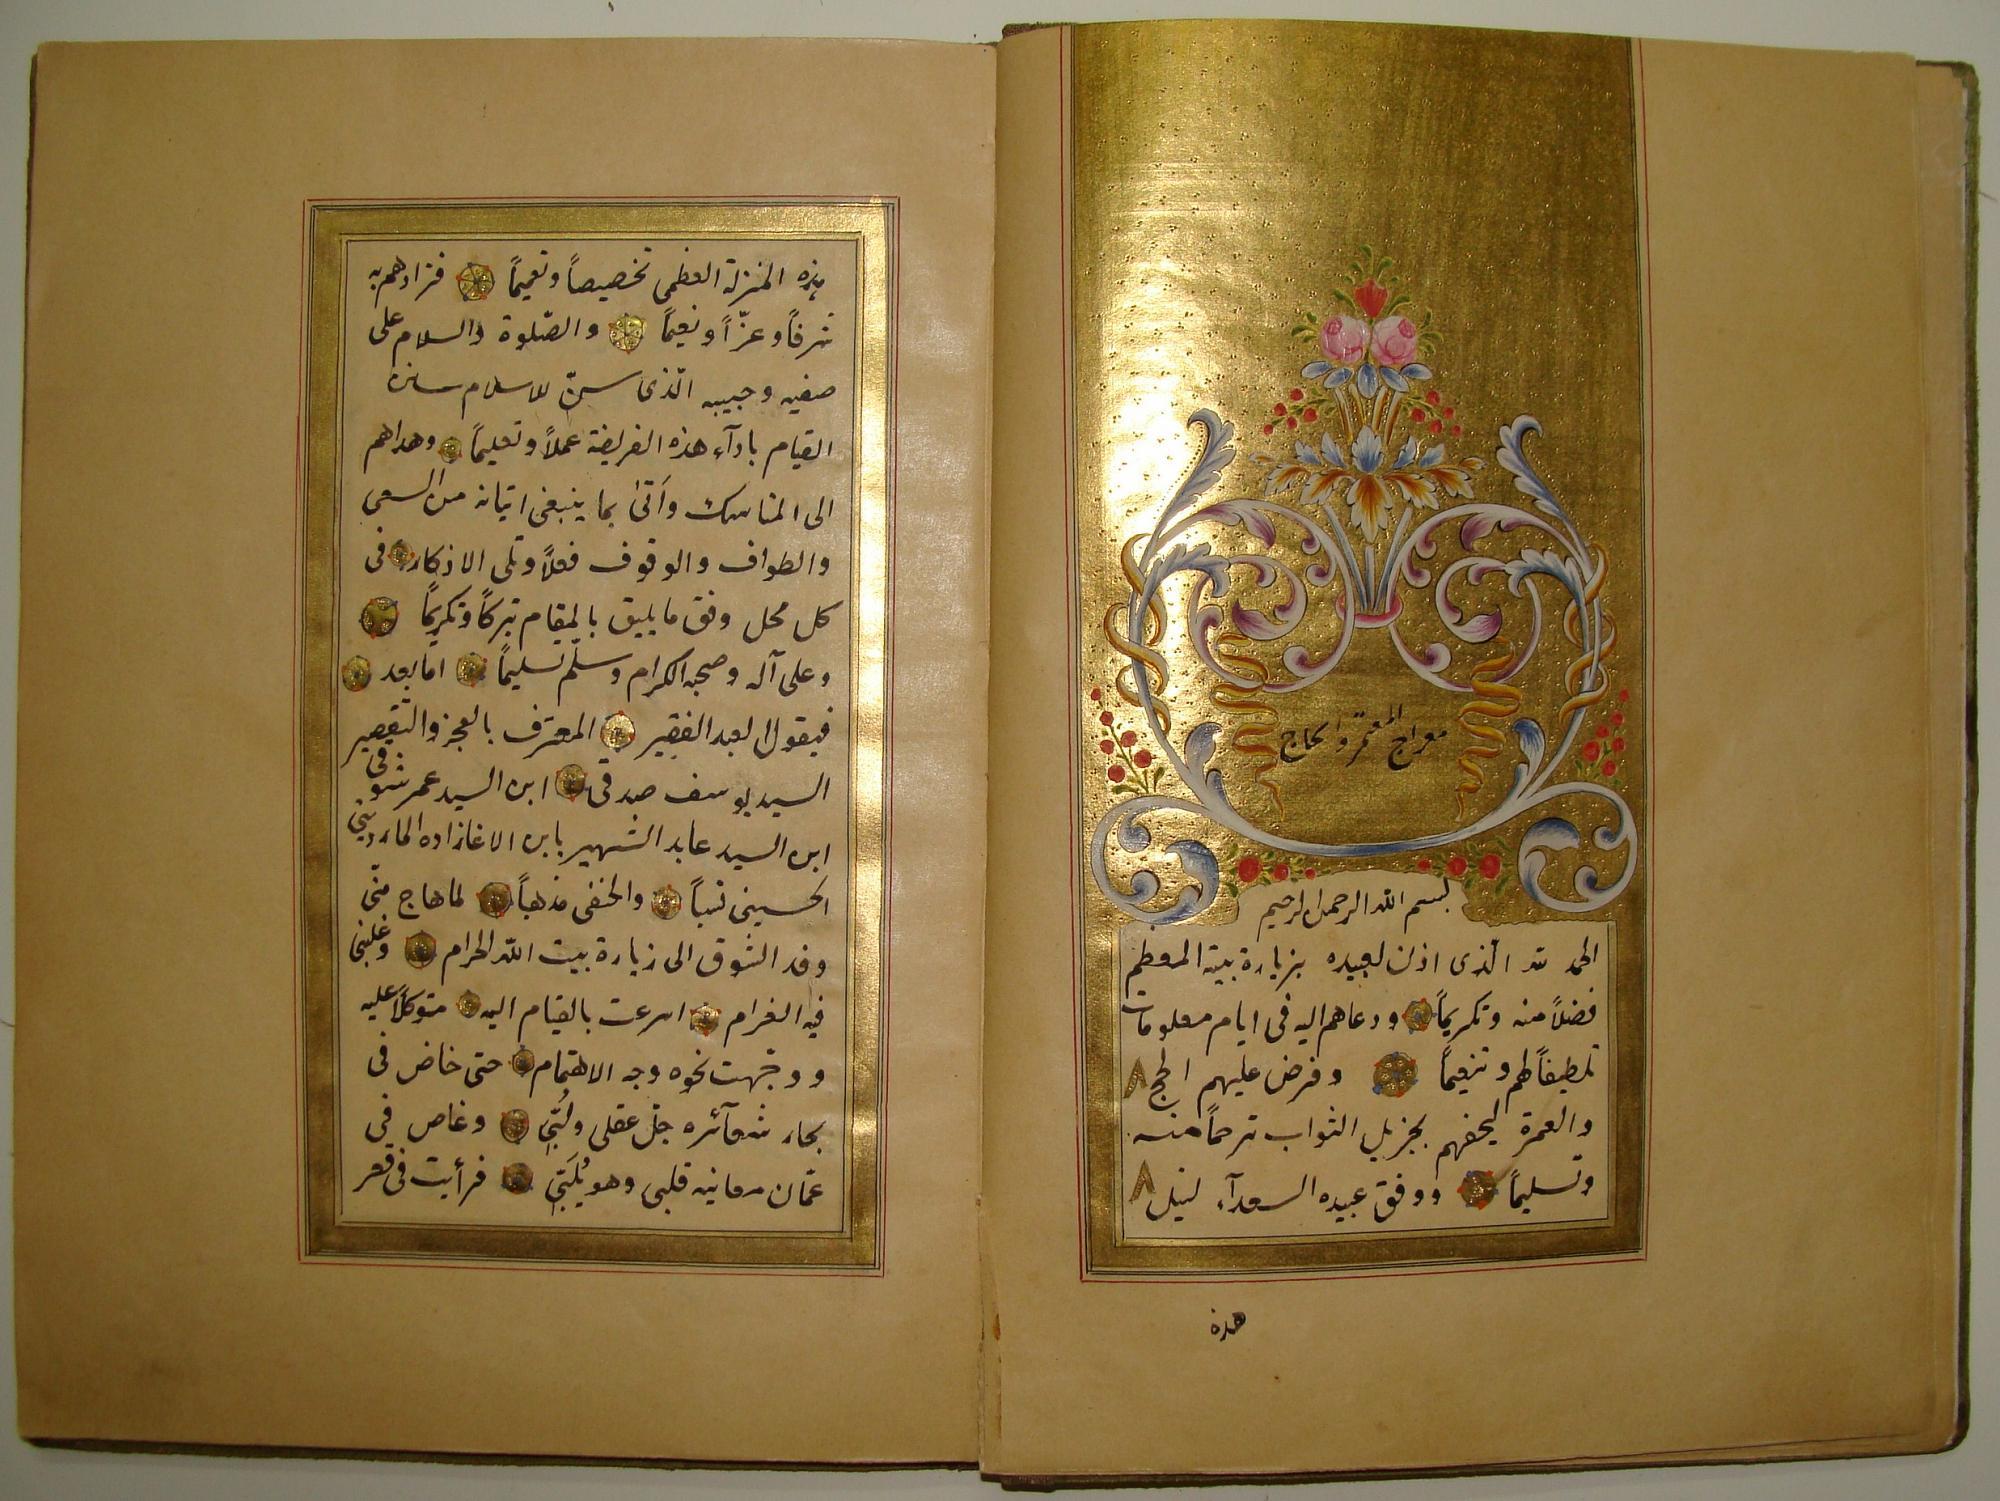 معراج المعتمر والحاج
بسم الله الرحمن الرحيم
الحمد لله الذى اذن لعبيده بزيارة بيته المعظم
فضلاً منه وتكريماً ودعاهم اليه فى ايام معلومات
تلطيفاً لهم وتنعيماً وفرض عليهم الحج
والعمرة ليحفهم بجزيل الثواب ترحماً منه
وتسليماً ووفق عبيده السعدآء لنيل
هذه
هذه المنزلة العظمى تخصيصاً وتعميماً فزادهم به
شرفاً وعزّاً ونعيماً والصّلوة والسلام على
صفيه وحبيبه الّذى سنّ للاسلام سنن
القيام بادآء هذه الفريضة عملاً وتعليماً وهداهم
الى المناسك وأتى بما ينبغى اتيانه من السعى
والطواف والوقوف فعلاً وتلى الاذكار فى
كل محل وفق ما يليق بالمقام تبركاً وتكريماً
وعلى آله وصحبه الكرام وسلّم تسليماً اما بعد
فيقول العبد الفقير المعترف بالعجز والتقصير
السيد يوسف صدقى ابن السيد عمر شوقى
ابن السيد عابد الشهير بابن الاغازاده الماردينى
الحسينى نسباً والحنفى مذهباً لما هاج منّى
وفد الشوق الى زيارة بيت الله الحرام وغلبنى
فيه الغرام اسرعت بالقيام اليه متوكلاً عليه
ووجّهت نحوه وجه الاهتمام حتى خاض فى
بحار شعآئره جلّ عقلى ولُبّى وغاص فى
عمّان معانيه قلبى وهو يُلَبّى فرأيت فى قعر